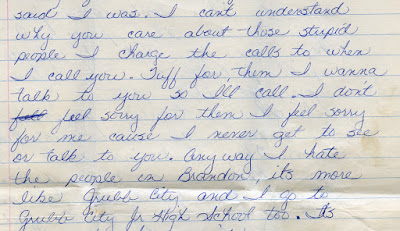 said I was. I cant understand
why you care about those stupid
people I charge the calls to when
I call you. Tuff for them I wanna
talk to you so Ill call. I dont
feel sorry for them I feel sorry
for me cause I never get to see
or talk to you. Any way I hate
the people in Brandon, its more
like Grubb City and I go to
Grubb City Jr High School too. Its